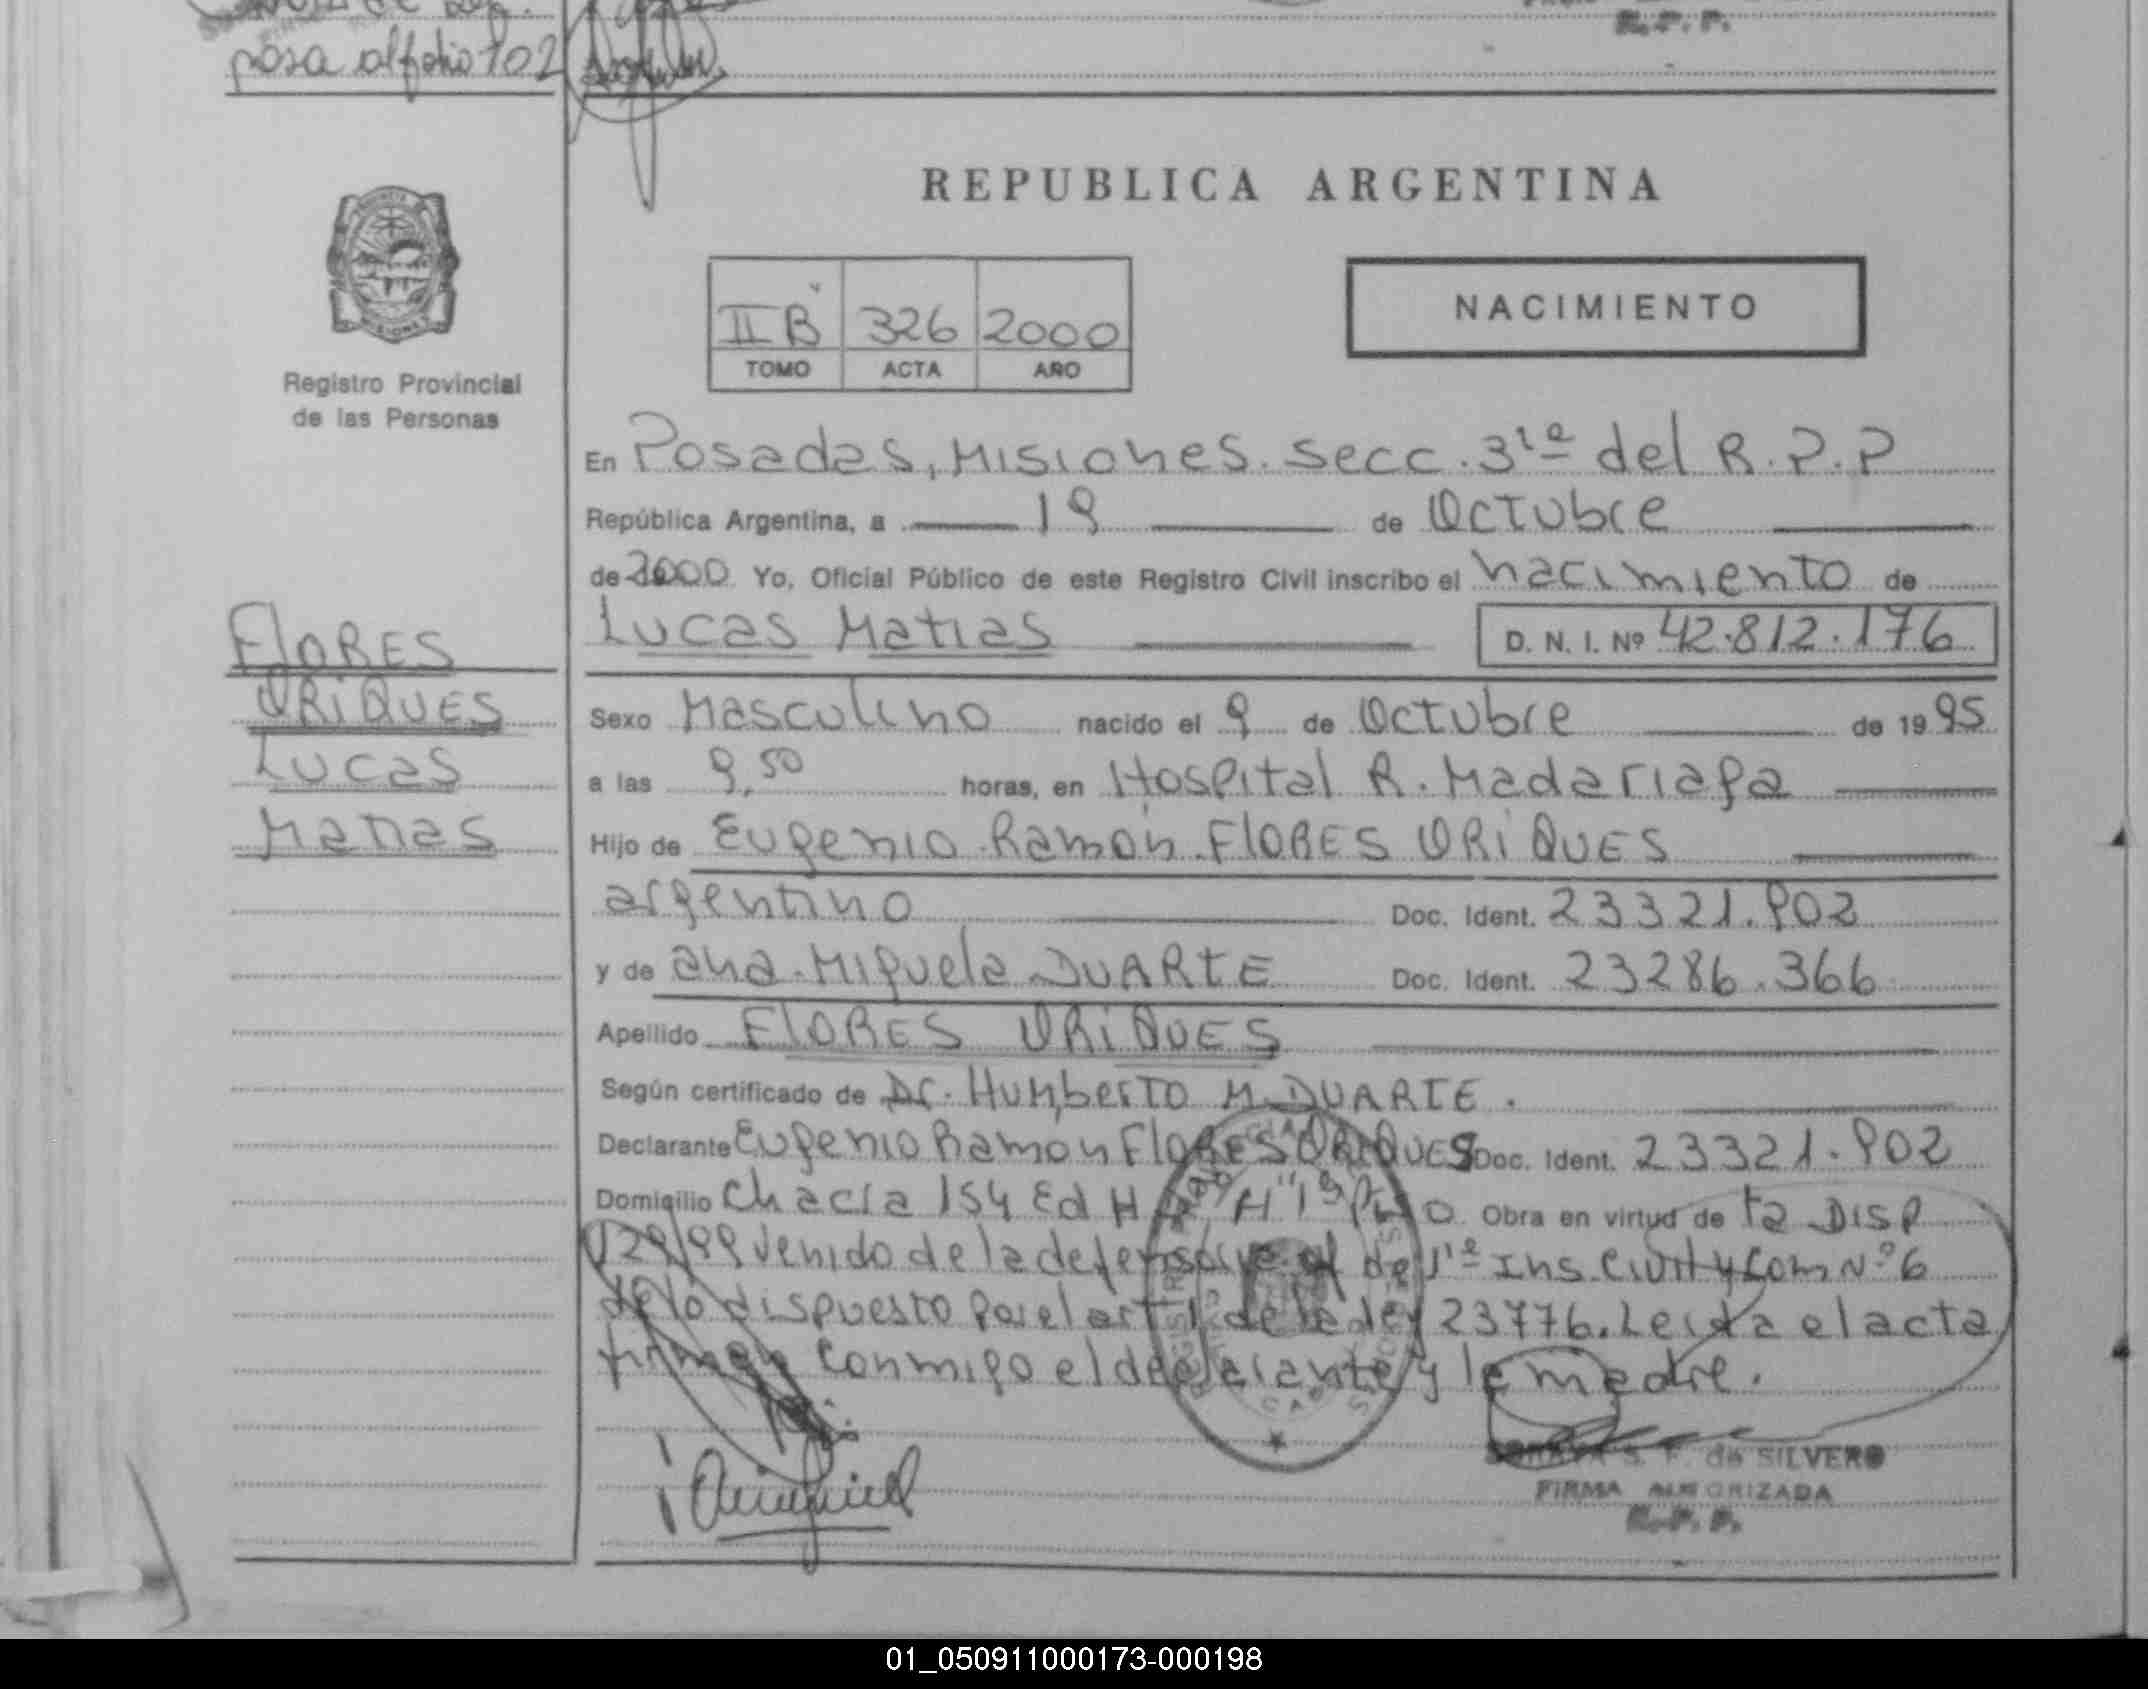 pasa al folio 102
R.P.P.
REPUBLICA ARGENTINA
NACIMIENTO
II B 326 2000
TOMO ACTA AÑO
Registro Provincial
de las Personas
En Posadas, Misiones. Secc. 3ra del R.P.P
República Argentina, a 19 de Octubre
de 2000 Yo, Oficial Público de este Registro Civil inscribo el nacimiento de
Lucas Matias D. N. I. Nº 42.812.176
FLORES
ORIQUES
Lucas
Matias
Sexo Masculino nacido el 9 de Octubre de 1995
a las 9,50 horas, en Hospital R. Madariaga
Hijo de Eugenio Ramón FLORES ORIQUES
argentino Doc. Ident. 23321.902
y de Ana Miguela DUARTE Doc. Ident. 23286.366
Apellido FLORES ORIQUES
Según certificado de Dr. Humberto M. DUARTE.
Declarante Eugenio Ramón FLORES ORIQUES Doc. Ident. 23321.902
Domicilio Chacra 154 Ed H "H" 1º Piso Obra en virtud de la DISP
129/99 venido de la defensoria of de 1ra Ins. Civil y Com Nº 6
de lo dispuesto por el art 1 de la ley 23776. Leida el acta
firman conmigo el declarante y la madre.
S. F. de SILVERO
FIRMA AUTORIZADA
R.P.P.
01_050911000173-000198